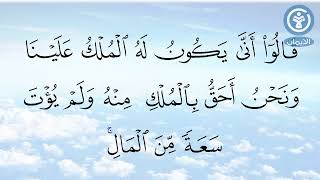 الإيمان
قَالُوٓا۟ أَنَّىٰ يَكُونُ لَهُ ٱلْمُلْكُ عَلَيْنَا
وَنَحْنُ أَحَقُّ بِٱلْمُلْكِ مِنْهُ وَلَمْ يُؤْتَ
سَعَةً مِّنَ ٱلْمَالِ ۚ